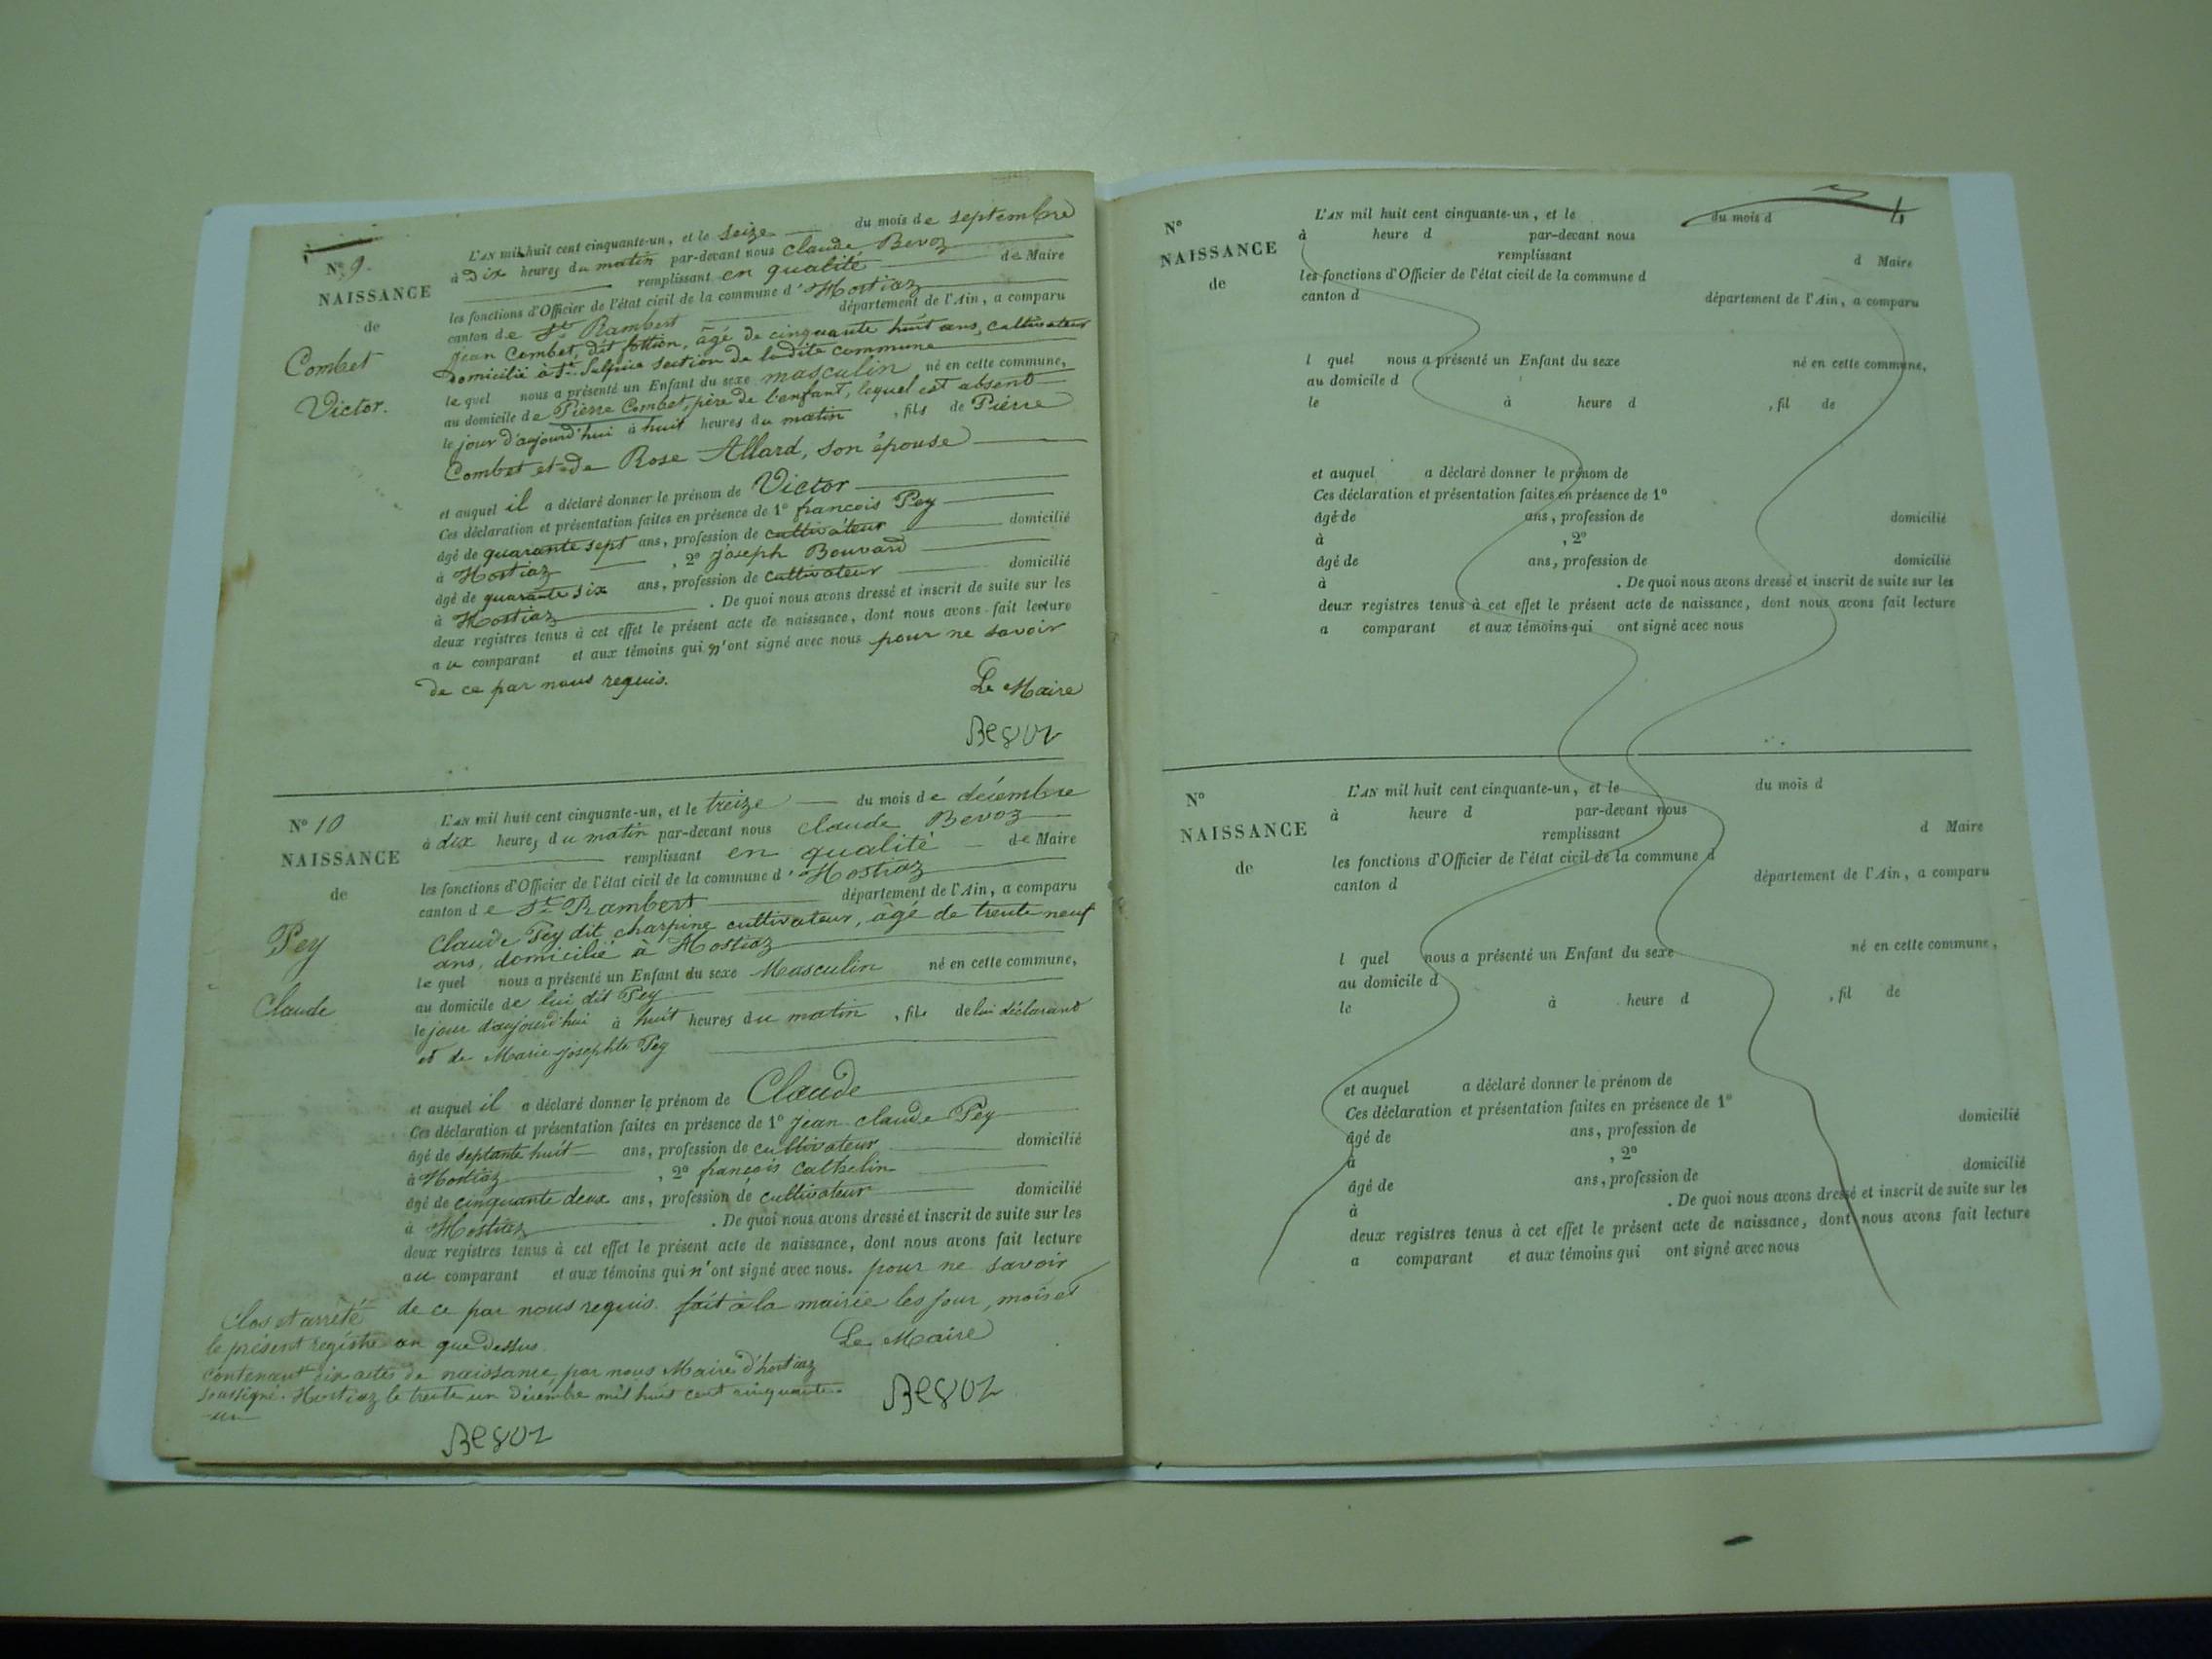 N° 9.
NAISSANCE
de
Combet
Victor.
L'AN mil huit cent cinquante-un, et le seize du mois de septembre
à Dix heures du matin par-devant nous Claude Bevoz
remplissant en qualité de Maire
les fonctions d'Officier de l'état civil de la commune d'Hostiaz
canton de St Rambert département de l'Ain, a comparu
Jean Combet, dit, âgé de cinquante huit ans, cultivateur
Domicilié à St Sulpice section de ladite commune
le quel nous a présenté un Enfant du sexe masculin né en cette commune,
au domicile de Pierre Combet, père de l'enfant, lequel est absent
le jour d'aujourd'hui à huit heures du matin, fils de Pierre
Combet et de Rose Allard, son épouse
et auquel il a déclaré donner le prénom de Victor
Ces déclaration et présentation faites en présence de 1° françois Pey
âgé de quarante sept ans, profession de cultivateur domicilié
à Hostiaz, 2° joseph Bouvard
âgé de quarante six ans, profession de cultivateur domicilié
à Hostiaz. De quoi nous avons dressé et inscrit de suite sur les
deux registres tenus à cet effet le présent acte de naissance, dont nous avons fait lecture
au comparant et aux témoins qui n'ont signé avec nous pour ne savoir
de ce par nous requis.
Le Maire
Bevoz
N° 10
NAISSANCE
de
Pey
Claude
L'AN mil huit cent cinquante-un, et le treize du mois de décembre
à dix heures du matin par-devant nous Claude Bevoz
remplissant en qualité de Maire
les fonctions d'Officier de l'état civil de la commune d'Hostiaz
canton de St Rambert département de l'Ain, a comparu
Claude Pey dit charpine cultivateur, âgé de trente neuf
ans, domicilié à Hostiaz
le quel nous a présenté un Enfant du sexe Masculin né en cette commune,
au domicile de lui dit Pey
le jour d'aujourd'hui à huit heures du matin, fils de lui déclarant
et de Marie josephte Pey
et auquel il a déclaré donner le prénom de Claude
Ces déclaration et présentation faites en présence de 1° jean claude Pey
âgé de septante huit ans, profession de cultivateur domicilié
à Hostiaz, 2° françois Cathelin
âgé de cinquante deux ans, profession de cultivateur domicilié
à Hostiaz. De quoi nous avons dressé et inscrit de suite sur les
deux registres tenus à cet effet le présent acte de naissance, dont nous avons fait lecture
au comparant et aux témoins qui n'ont signé avec nous. pour ne savoir
de ce par nous requis. fait à la mairie les jour, mois et
an que dessus.
Le Maire
Bevoz
Clos et arrêté
le présent registre
contenant dix actes de naissance, par nous Maire d'hostiaz
soussigné. Hostiaz le trente un Décembre mil huit cent cinquante-
un
Bevoz
4
N°
NAISSANCE
de
L'AN mil huit cent cinquante-un, et le du mois d
à heure d par-devant nous
remplissant d Maire
les fonctions d'Officier de l'état civil de la commune d
canton d département de l'Ain, a comparu
l quel nous a présenté un Enfant du sexe né en cette commune,
au domicile d
le à heure d , fil de
et auquel a déclaré donner le prénom de
Ces déclaration et présentation faites en présence de 1°
âgé de ans, profession de domicilié
à , 2°
âgé de ans, profession de domicilié
à . De quoi nous avons dressé et inscrit de suite sur les
deux registres tenus à cet effet le présent acte de naissance, dont nous avons fait lecture
a comparant et aux témoins qui ont signé avec nous
N°
NAISSANCE
de
L'AN mil huit cent cinquante-un, et le du mois d
à heure d par-devant nous
remplissant d Maire
les fonctions d'Officier de l'état civil de la commune d
canton d département de l'Ain, a comparu
l quel nous a présenté un Enfant du sexe né en cette commune,
au domicile d
le à heure d , fil de
et auquel a déclaré donner le prénom de
Ces déclaration et présentation faites en présence de 1°
âgé de ans, profession de domicilié
à , 2°
âgé de ans, profession de domicilié
à . De quoi nous avons dressé et inscrit de suite sur les
deux registres tenus à cet effet le présent acte de naissance, dont nous avons fait lecture
a comparant et aux témoins qui ont signé avec nous